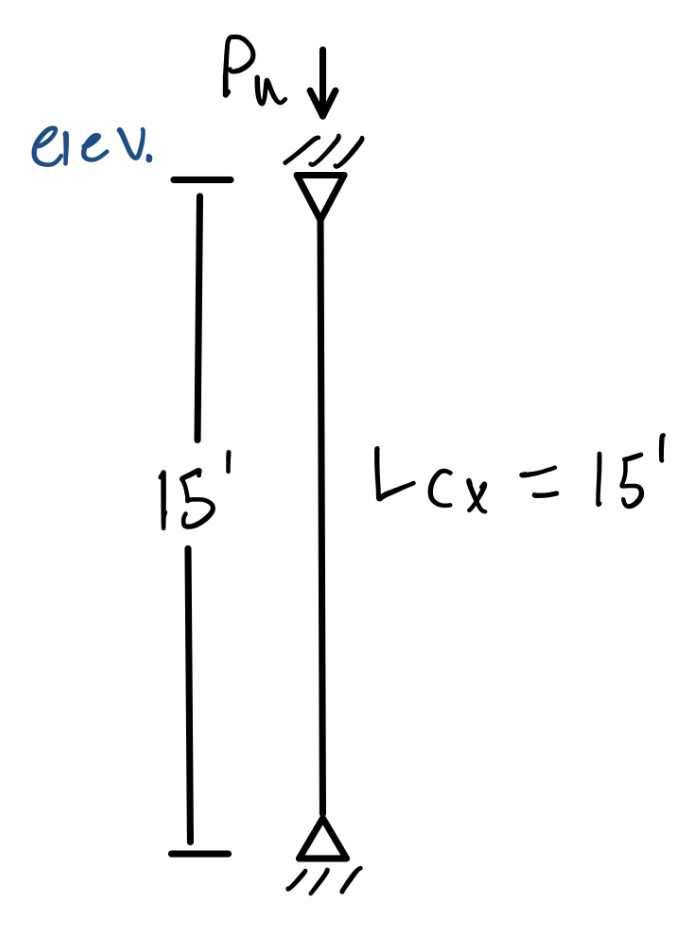 Pu
elev.
15'
Lcx = 15'